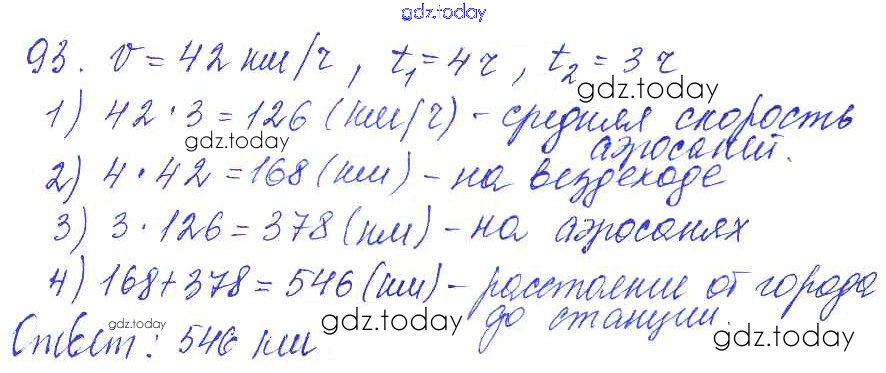 gdz.today
93. v = 42 км/ч, t₁ = 4 ч, t₂ = 3 ч
gdz.today
1) 42 · 3 = 126 (км/ч) - средняя скорость
gdz.today
аэросаней.
2) 4 · 42 = 168 (км) - на вездеходе
3) 3 · 126 = 378 (км) - на аэросанях
4) 168 + 378 = 546 (км) - расстояние от города
до станции.
gdz.today gdz.today gdz.today
Ответ: 546 км